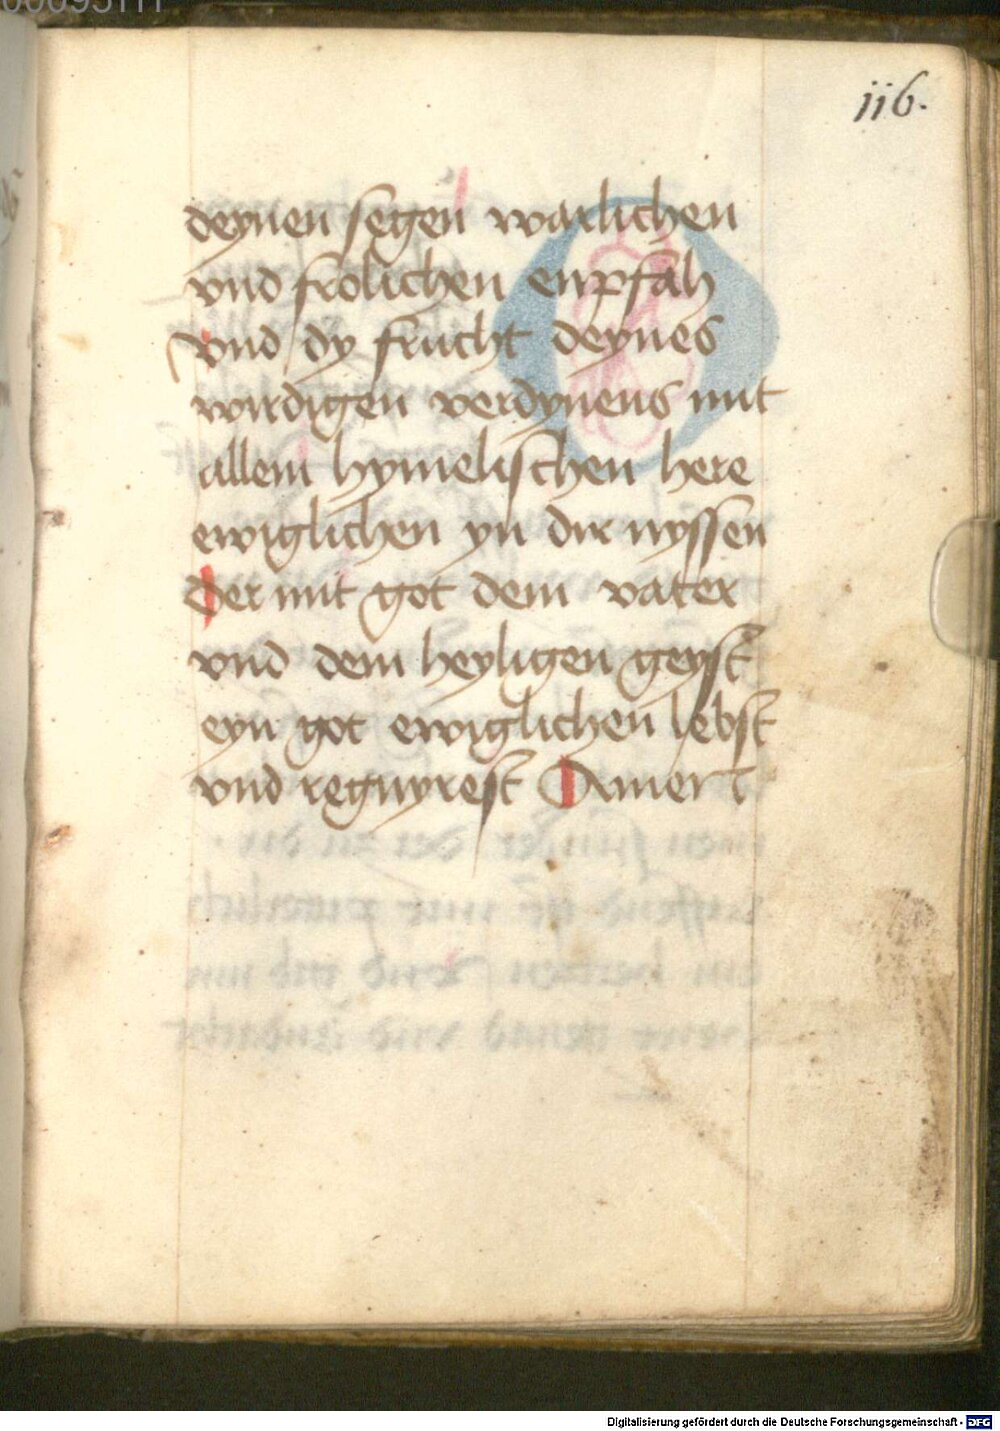 116.
deynen segen warlichen
vnd frolichen enpfah
vnd dy frucht deynes
wirdigen verdynens mit
allem hymelischen here
ewiglichen yn dir nyssen
der mit got dem vater
vnd dem heyligen geyst
eyn got ewiglichen lebst
vnd regnyrest Amen
Digitalisierung gefördert durch die Deutsche Forschungsgemeinschaft - DFG